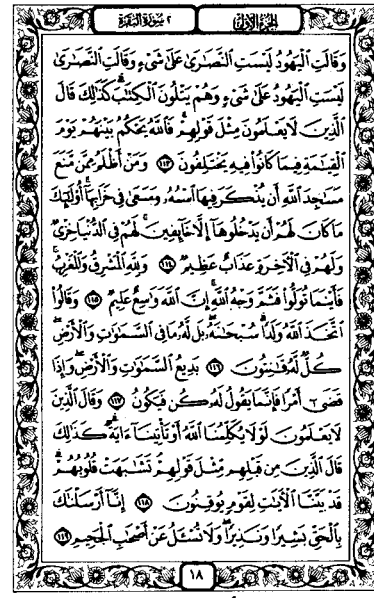 الجزء الأول ٢ سورة البقرة
وَقَالَتِ ٱلۡيَهُودُ لَيۡسَتِ ٱلنَّصَٰرَىٰ عَلَىٰ شَيۡءٖ وَقَالَتِ ٱلنَّصَٰرَىٰ
لَيۡسَتِ ٱلۡيَهُودُ عَلَىٰ شَيۡءٖ وَهُمۡ يَتۡلُونَ ٱلۡكِتَٰبَۗ كَذَٰلِكَ قَالَ
ٱلَّذِينَ لَا يَعۡلَمُونَ مِثۡلَ قَوۡلِهِمۡۚ فَٱللَّهُ يَحۡكُمُ بَيۡنَهُمۡ يَوۡمَ
ٱلۡقِيَٰمَةِ فِيمَا كَانُواْ فِيهِ يَخۡتَلِفُونَ ١١٣ وَمَنۡ أَظۡلَمُ مِمَّن مَّنَعَ
مَسَٰجِدَ ٱللَّهِ أَن يُذۡكَرَ فِيهَا ٱسۡمُهُۥ وَسَعَىٰ فِي خَرَابِهَآۚ أُوْلَٰٓئِكَ
مَا كَانَ لَهُمۡ أَن يَدۡخُلُوهَآ إِلَّا خَآئِفِينَۚ لَهُمۡ فِي ٱلدُّنۡيَا خِزۡيٞ
وَلَهُمۡ فِي ٱلۡأٓخِرَةِ عَذَابٌ عَظِيمٞ ١١٤ وَلِلَّهِ ٱلۡمَشۡرِقُ وَٱلۡمَغۡرِبُۚ
فَأَيۡنَمَا تُوَلُّواْ فَثَمَّ وَجۡهُ ٱللَّهِۚ إِنَّ ٱللَّهَ وَٰسِعٌ عَلِيمٞ ١١٥ وَقَالُواْ
ٱتَّخَذَ ٱللَّهُ وَلَدٗاۗ سُبۡحَٰنَهُۥۖ بَل لَّهُۥ مَا فِي ٱلسَّمَٰوَٰتِ وَٱلۡأَرۡضِۖ
كُلّٞ لَّهُۥ قَٰنِتُونَ ١١٦ بَدِيعُ ٱلسَّمَٰوَٰتِ وَٱلۡأَرۡضِۖ وَإِذَا
قَضَىٰٓ أَمۡرٗا فَإِنَّمَا يَقُولُ لَهُۥ كُن فَيَكُونُ ١١٧ وَقَالَ ٱلَّذِينَ
لَا يَعۡلَمُونَ لَوۡلَا يُكَلِّمُنَا ٱللَّهُ أَوۡ تَأۡتِينَآ ءَايَةٞۗ كَذَٰلِكَ
قَالَ ٱلَّذِينَ مِن قَبۡلِهِم مِّثۡلَ قَوۡلِهِمۡۘ تَشَٰبَهَتۡ قُلُوبُهُمۡۗ
قَدۡ بَيَّنَّا ٱلۡأٓيَٰتِ لِقَوۡمٖ يُوقِنُونَ ١١٨ إِنَّآ أَرۡسَلۡنَٰكَ
بِٱلۡحَقِّ بَشِيرٗا وَنَذِيرٗاۖ وَلَا تُسۡـَٔلُ عَنۡ أَصۡحَٰبِ ٱلۡجَحِيمِ ١١٩
١٨